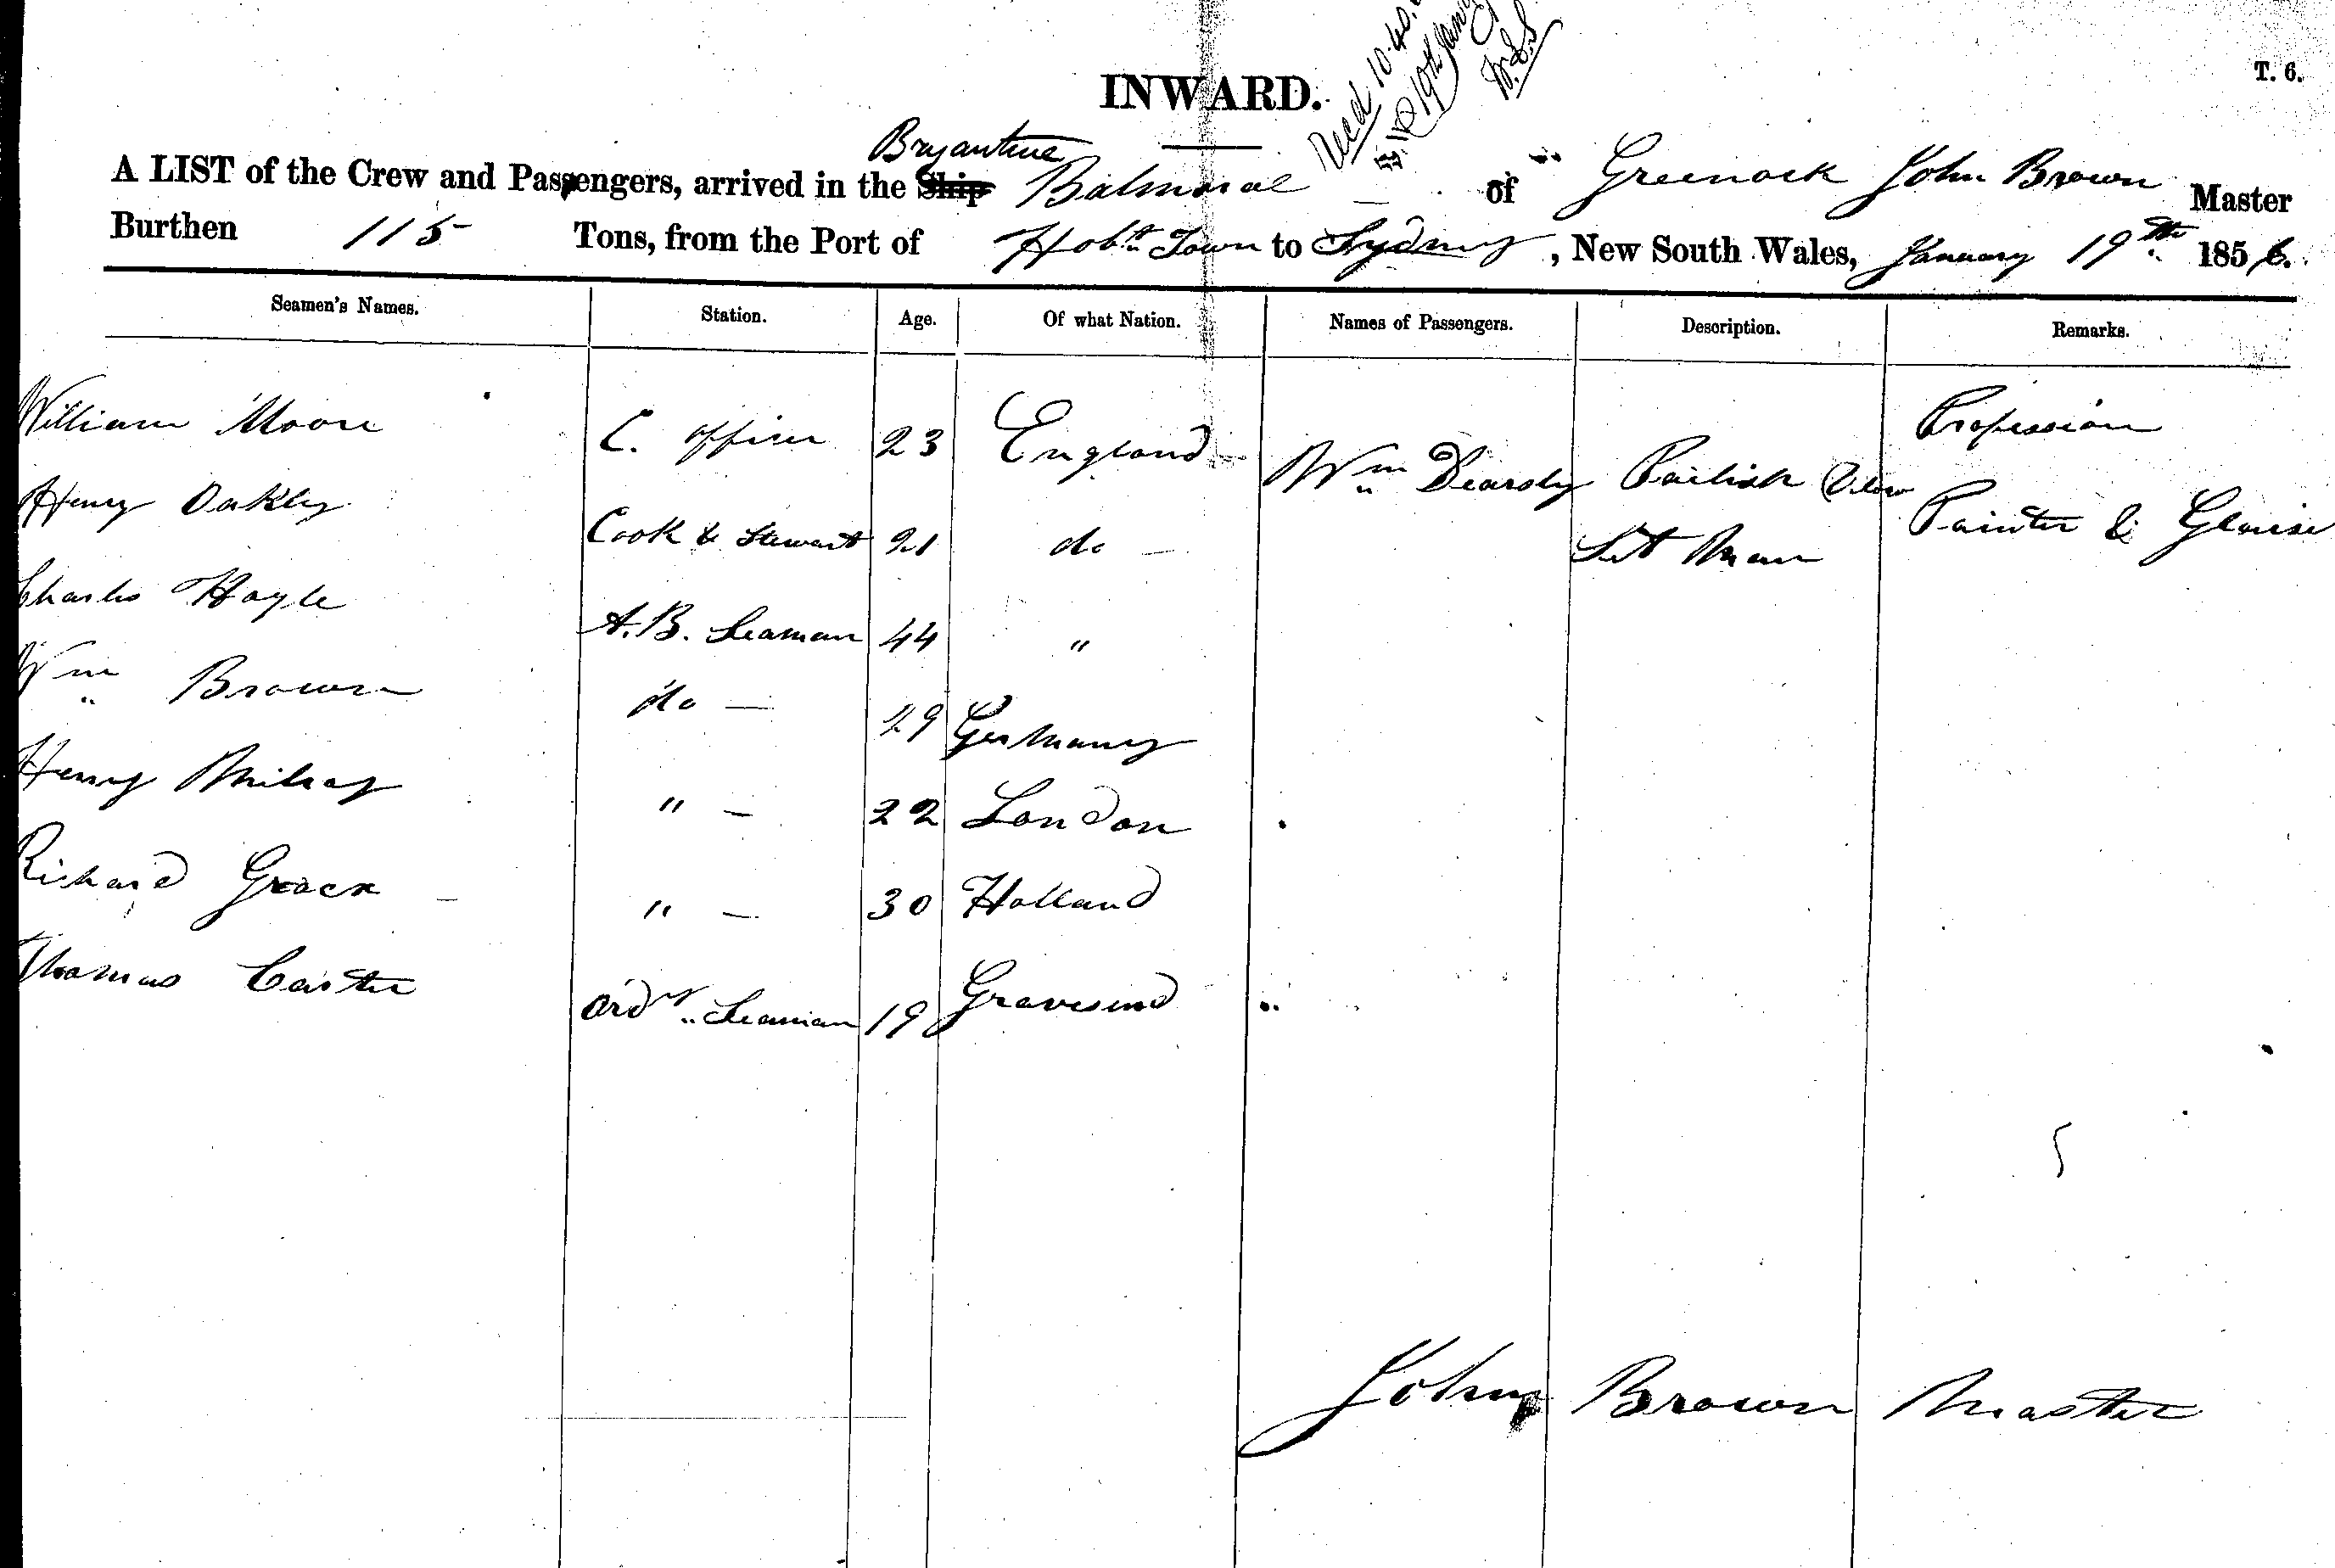 INWARD.
T. 6.
Recd 10.40.
19th Jany
W.S.S
Bryantine
A LIST of the Crew and Passengers, arrived in the Ship Balmoral of Greenock John Brown Master
Burthen 115 Tons, from the Port of Hobtn Town to Sydney, New South Wales, January 19th 1856.
Seamen's Names. Station. Age. Of what Nation. Names of Passengers. Description. Remarks.
Profession
William Moore C. officer 23 England Wm Dearsly Parlish
Henry Oakley Cook & Stewart 21 do - Set Man Painter & Glasier
Charles Hoyle A.B. Seaman 44 "
Wm Brown do — 29 Germany
Henry Milray " - 22 London
Richard Grack - " - 30 Holland
Thomas Carter Ordy Seaman 19 Gravesend
John Brown Master